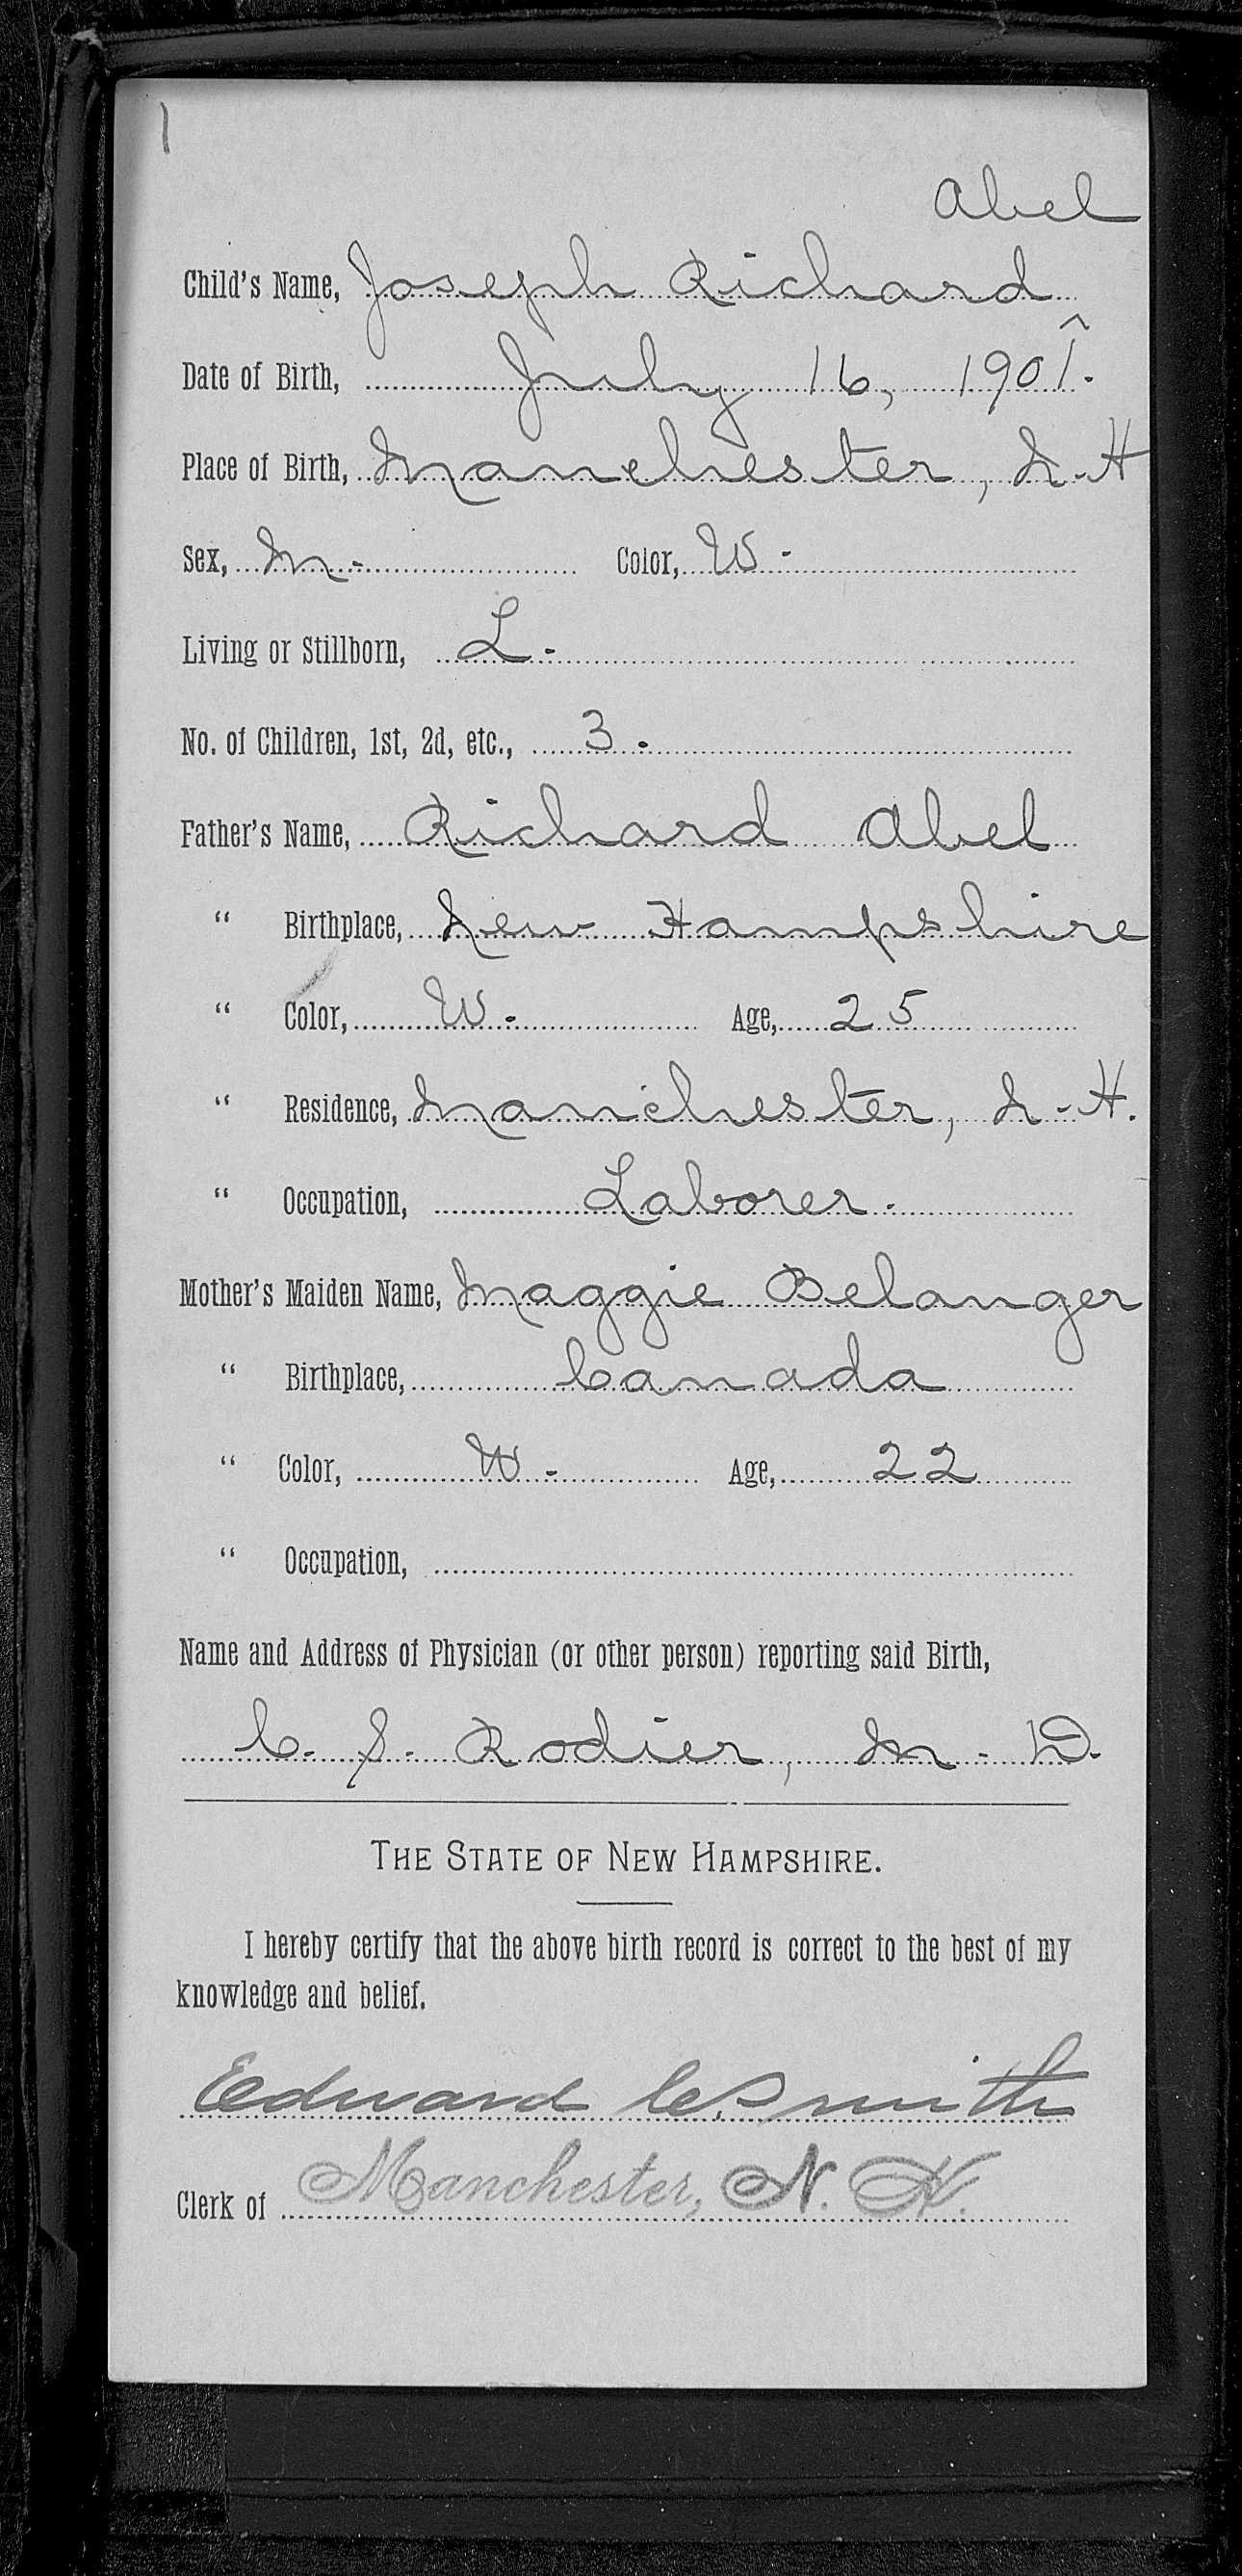 1
Abel
Child's Name, Joseph Richard
^
Date of Birth, July 16, 1901.
Place of Birth, Manchester, N.H
Sex, M. Color, W.
Living or Stillborn, L.
No. of Children, 1st, 2d, etc., 3.
Father's Name, Richard Abel
“ Birthplace, New Hampshire
“ Color, W. Age, 25
“ Residence, Manchester, N.H.
“ Occupation, Laborer.
Mother's Maiden Name, Maggie Belanger
“ Birthplace, Canada
“ Color, W. Age, 22
“ Occupation,
Name and Address of Physician (or other person) reporting said Birth,
C. S. Rodier, M.D.
THE STATE OF NEW HAMPSHIRE.
I hereby certify that the above birth record is correct to the best of my
knowledge and belief.
Edward C. Smith
Clerk of Manchester, N. H.